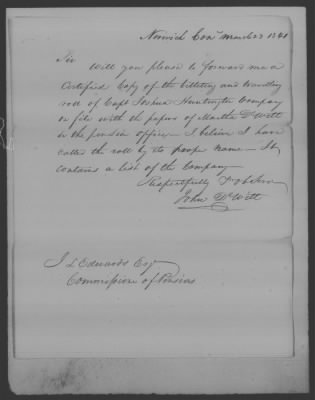 Norwich Con March 23 1841
Sir
Will you please to forward me a
Certified Copy of the billeting and travelling
roll of Capt Joshua Huntington Company
on file with the papers of Martha DeWitt
in the pension office I believe I have
called the roll by its proper name – It
contains a list of the Company
Respectfully
John DeWitt
J L Edwards Esq
Commissioner of Pensions